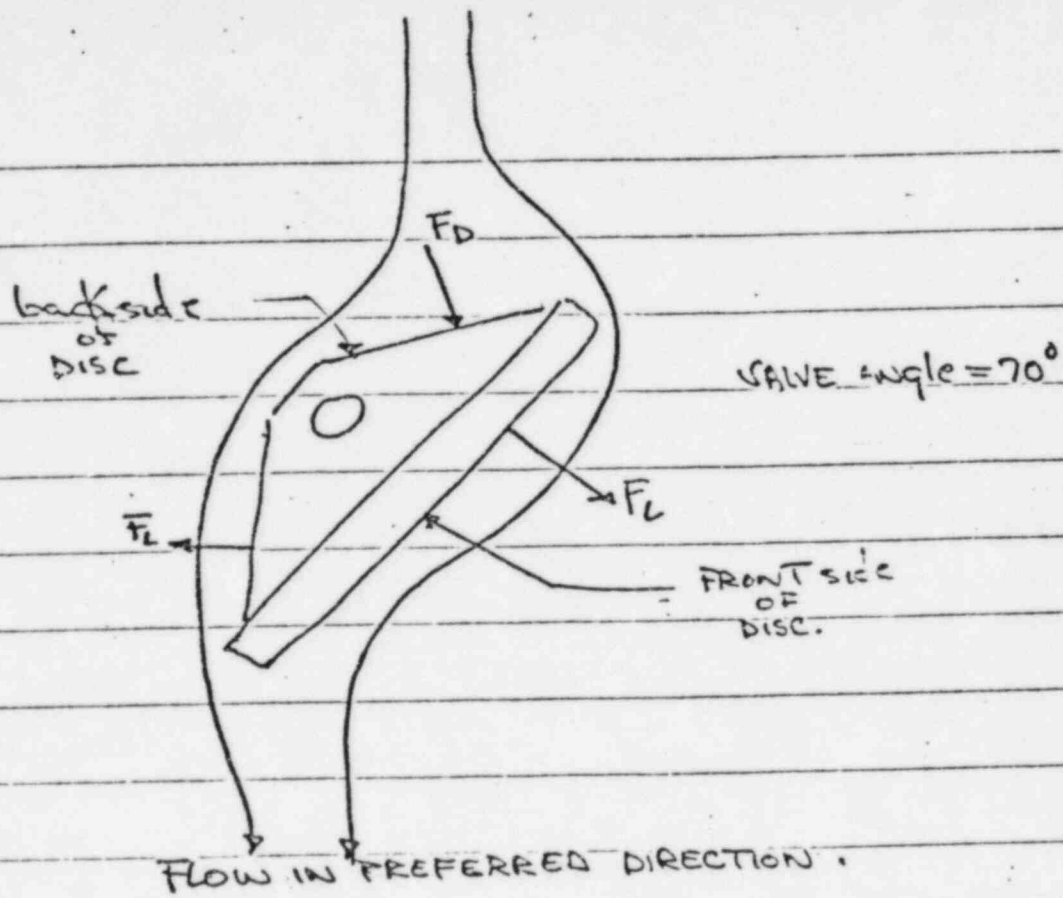 F_D
backside
OF
DISC
VALVE angle = 70°
F_L
F_L
FRONT side
OF
DISC.
FLOW IN PREFERRED DIRECTION.